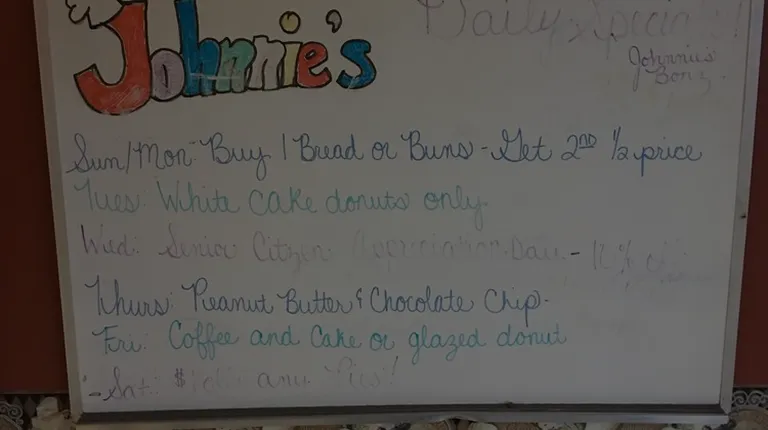 Johnnie's
Daily Specials!
Johnnie's
Sun/Mon: Buy 1 Bread or Buns - Get 2ND 1/2 price
Tues: White cake donuts only.
Wed: Senior Citizen Appreciation Day - 10%
Thurs: Peanut Butter & Chocolate Chip.
Fri: Coffee and Cake or glazed donut
- Sat: $1 off any Pies!